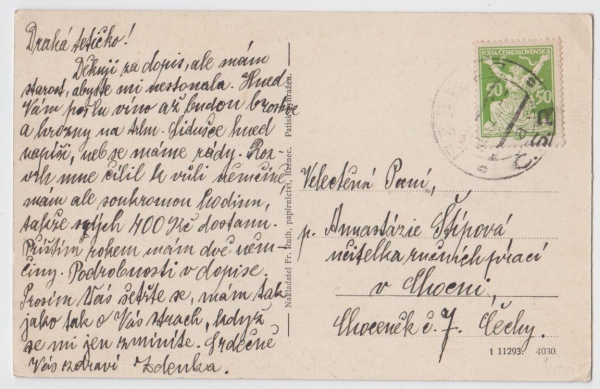 Drahá tetičko!
Děkuji za dopis, ale mám
starost, abyste mi nestonala. Hned
Vám pošlu víno až budou broskve
a hrozny na trhu. Lidušce hned
napíši, neb se máme rády. Roz-
vrh mne čílil k vůli němčině,
mám ale soukromou hodinu,
takže svých 400 Kč dostanu.
Příštím rokem mám dvě něm-
činy. Podrobnosti v dopise.
Prosím Vás šetřte se, mám tak
jako tak o Vás strach, když
se mi jen zmíníte. Srdečně
Vás zdraví Zdenka.
Nakladatel Fr. Ruth, papírnictví, Patisk vyhražen.
POŠTA ČESKOSLOVENSKÁ
50 50
Č.S.P.
Velectěná Paní,
p. Annastázie Štípová
učitelka ručních prací
v Chocni,
Choceněk č. 7. Čechy.
t 11293. 4030.